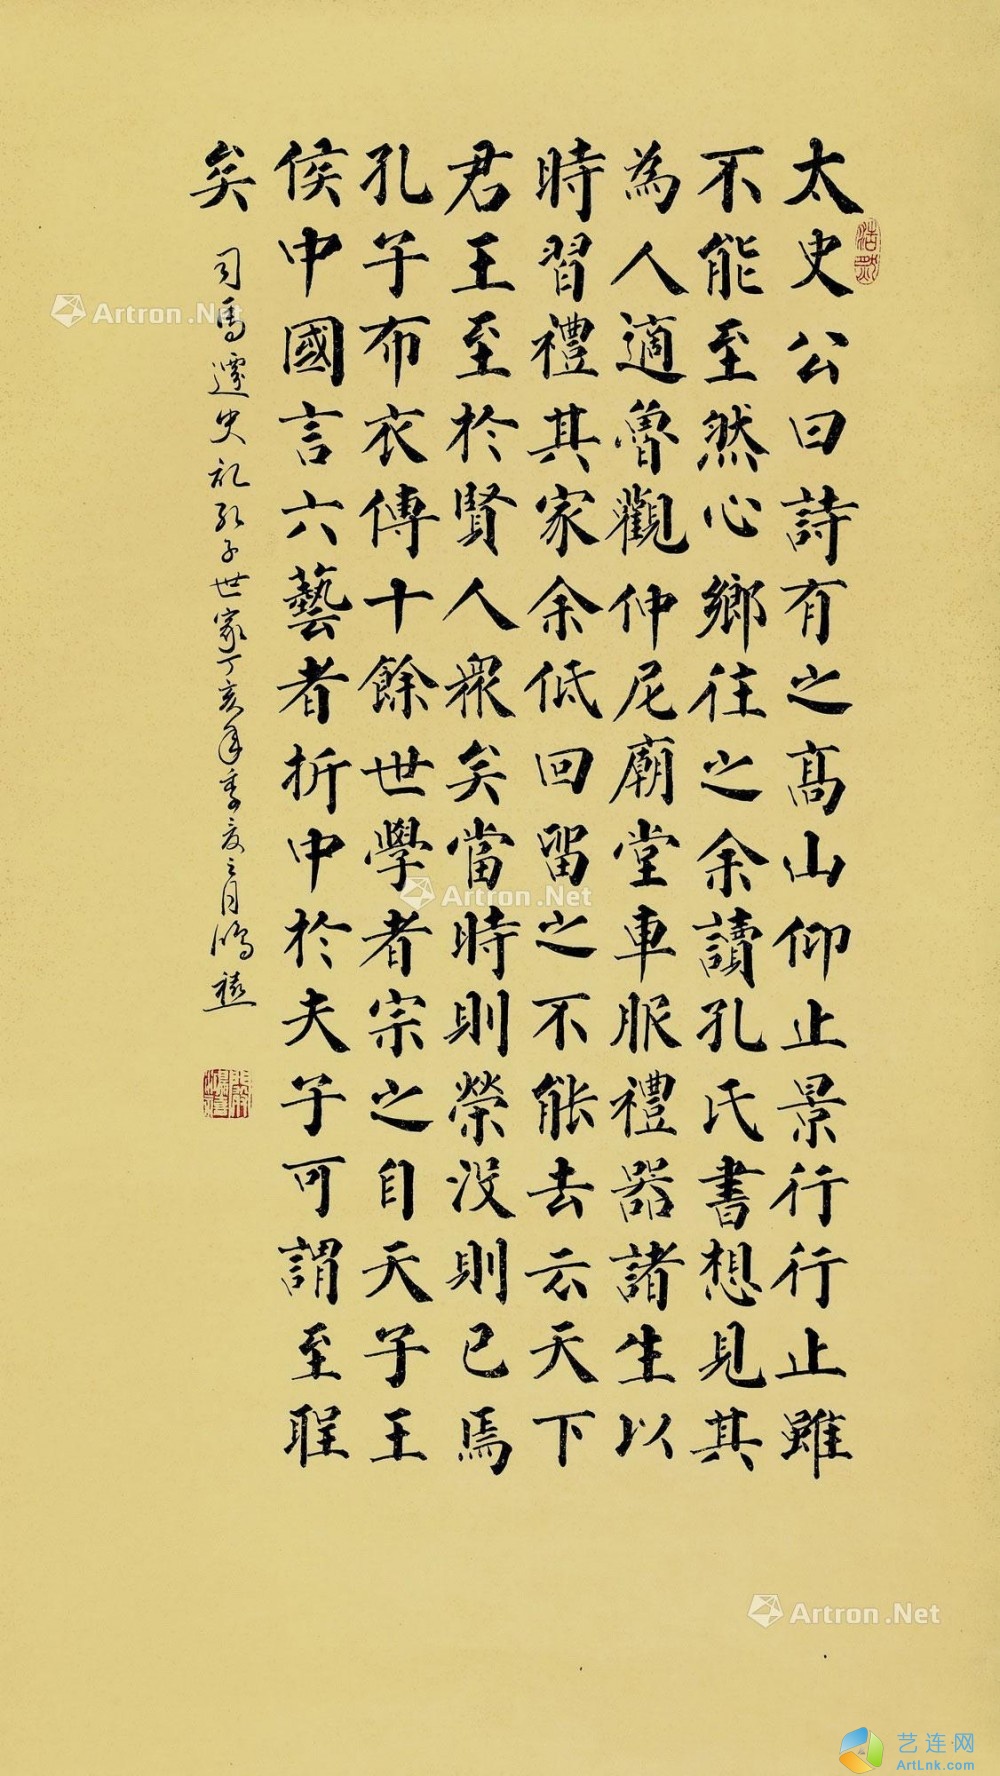 太史公曰詩有之高山仰止景行行止雖
不能至然心鄉往之余讀孔氏書想見其
為人適魯觀仲尼廟堂車服禮器諸生以
時習禮其家余低回留之不能去云天下
君王至於賢人衆矣當時則榮没則已焉
孔子布衣傳十餘世學者宗之自天子王
侯中國言六藝者折中於夫子可謂至聖
矣
司馬遷史記孔子世家丁亥年季夏之月
Artron.Net
Artron.Net
Artron.Net
艺连网
ArtLnk.com